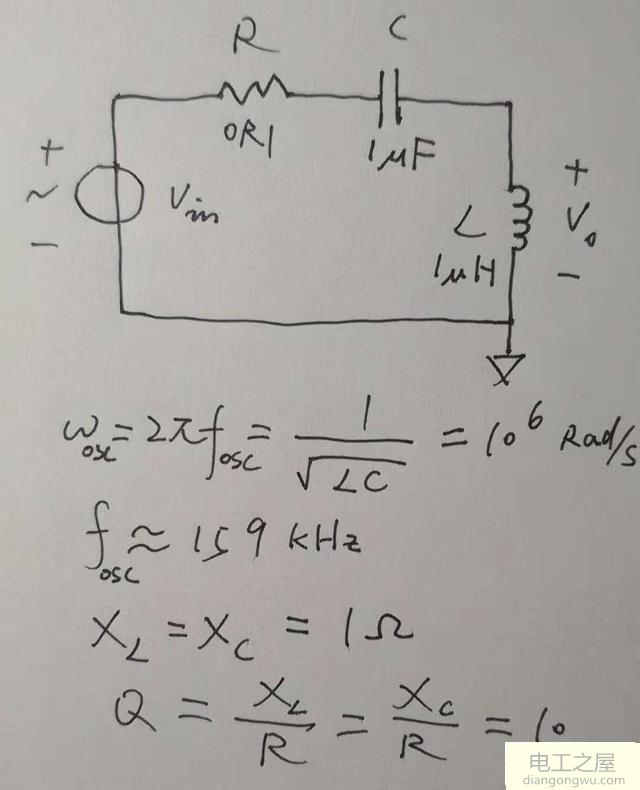 R C
0R1 1μF
+
~ Vin
−
L
1μH
+
Vo
−
ω_osc = 2πf_osc = 1/√(LC) = 10^6 Rad/s
f_osc ≈ 159 kHz
X_L = X_C = 1Ω
Q = X_L/R = X_C/R = 10
电工之屋
diangongwu.com